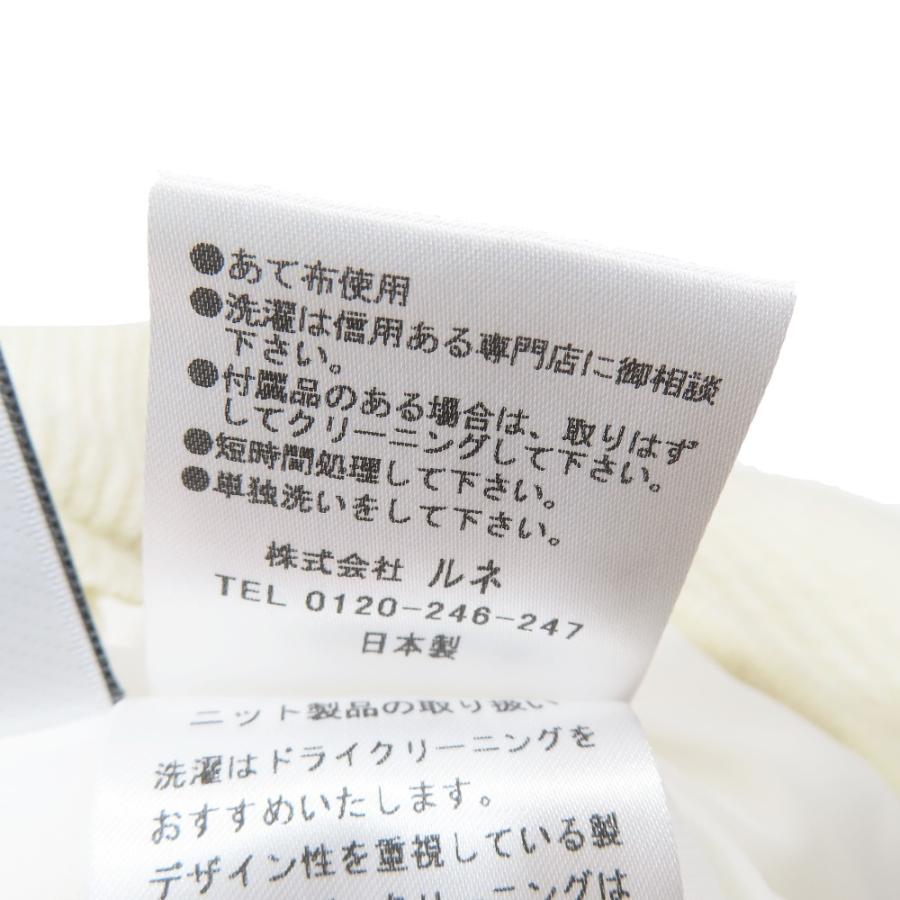 ●あて布使用
●洗濯は信用ある専門店に御相談
下さい。
●付属品のある場合は、取りはず
してクリーニングして下さい。
●短時間処理して下さい。
●単独洗いをして下さい。
株式会社 ルネ
TEL 0120-246-247
日本製
ニット製品の取り扱い
洗濯はドライクリーニングを
おすすめいたします。
デザイン性を重視している製
クリーニングは